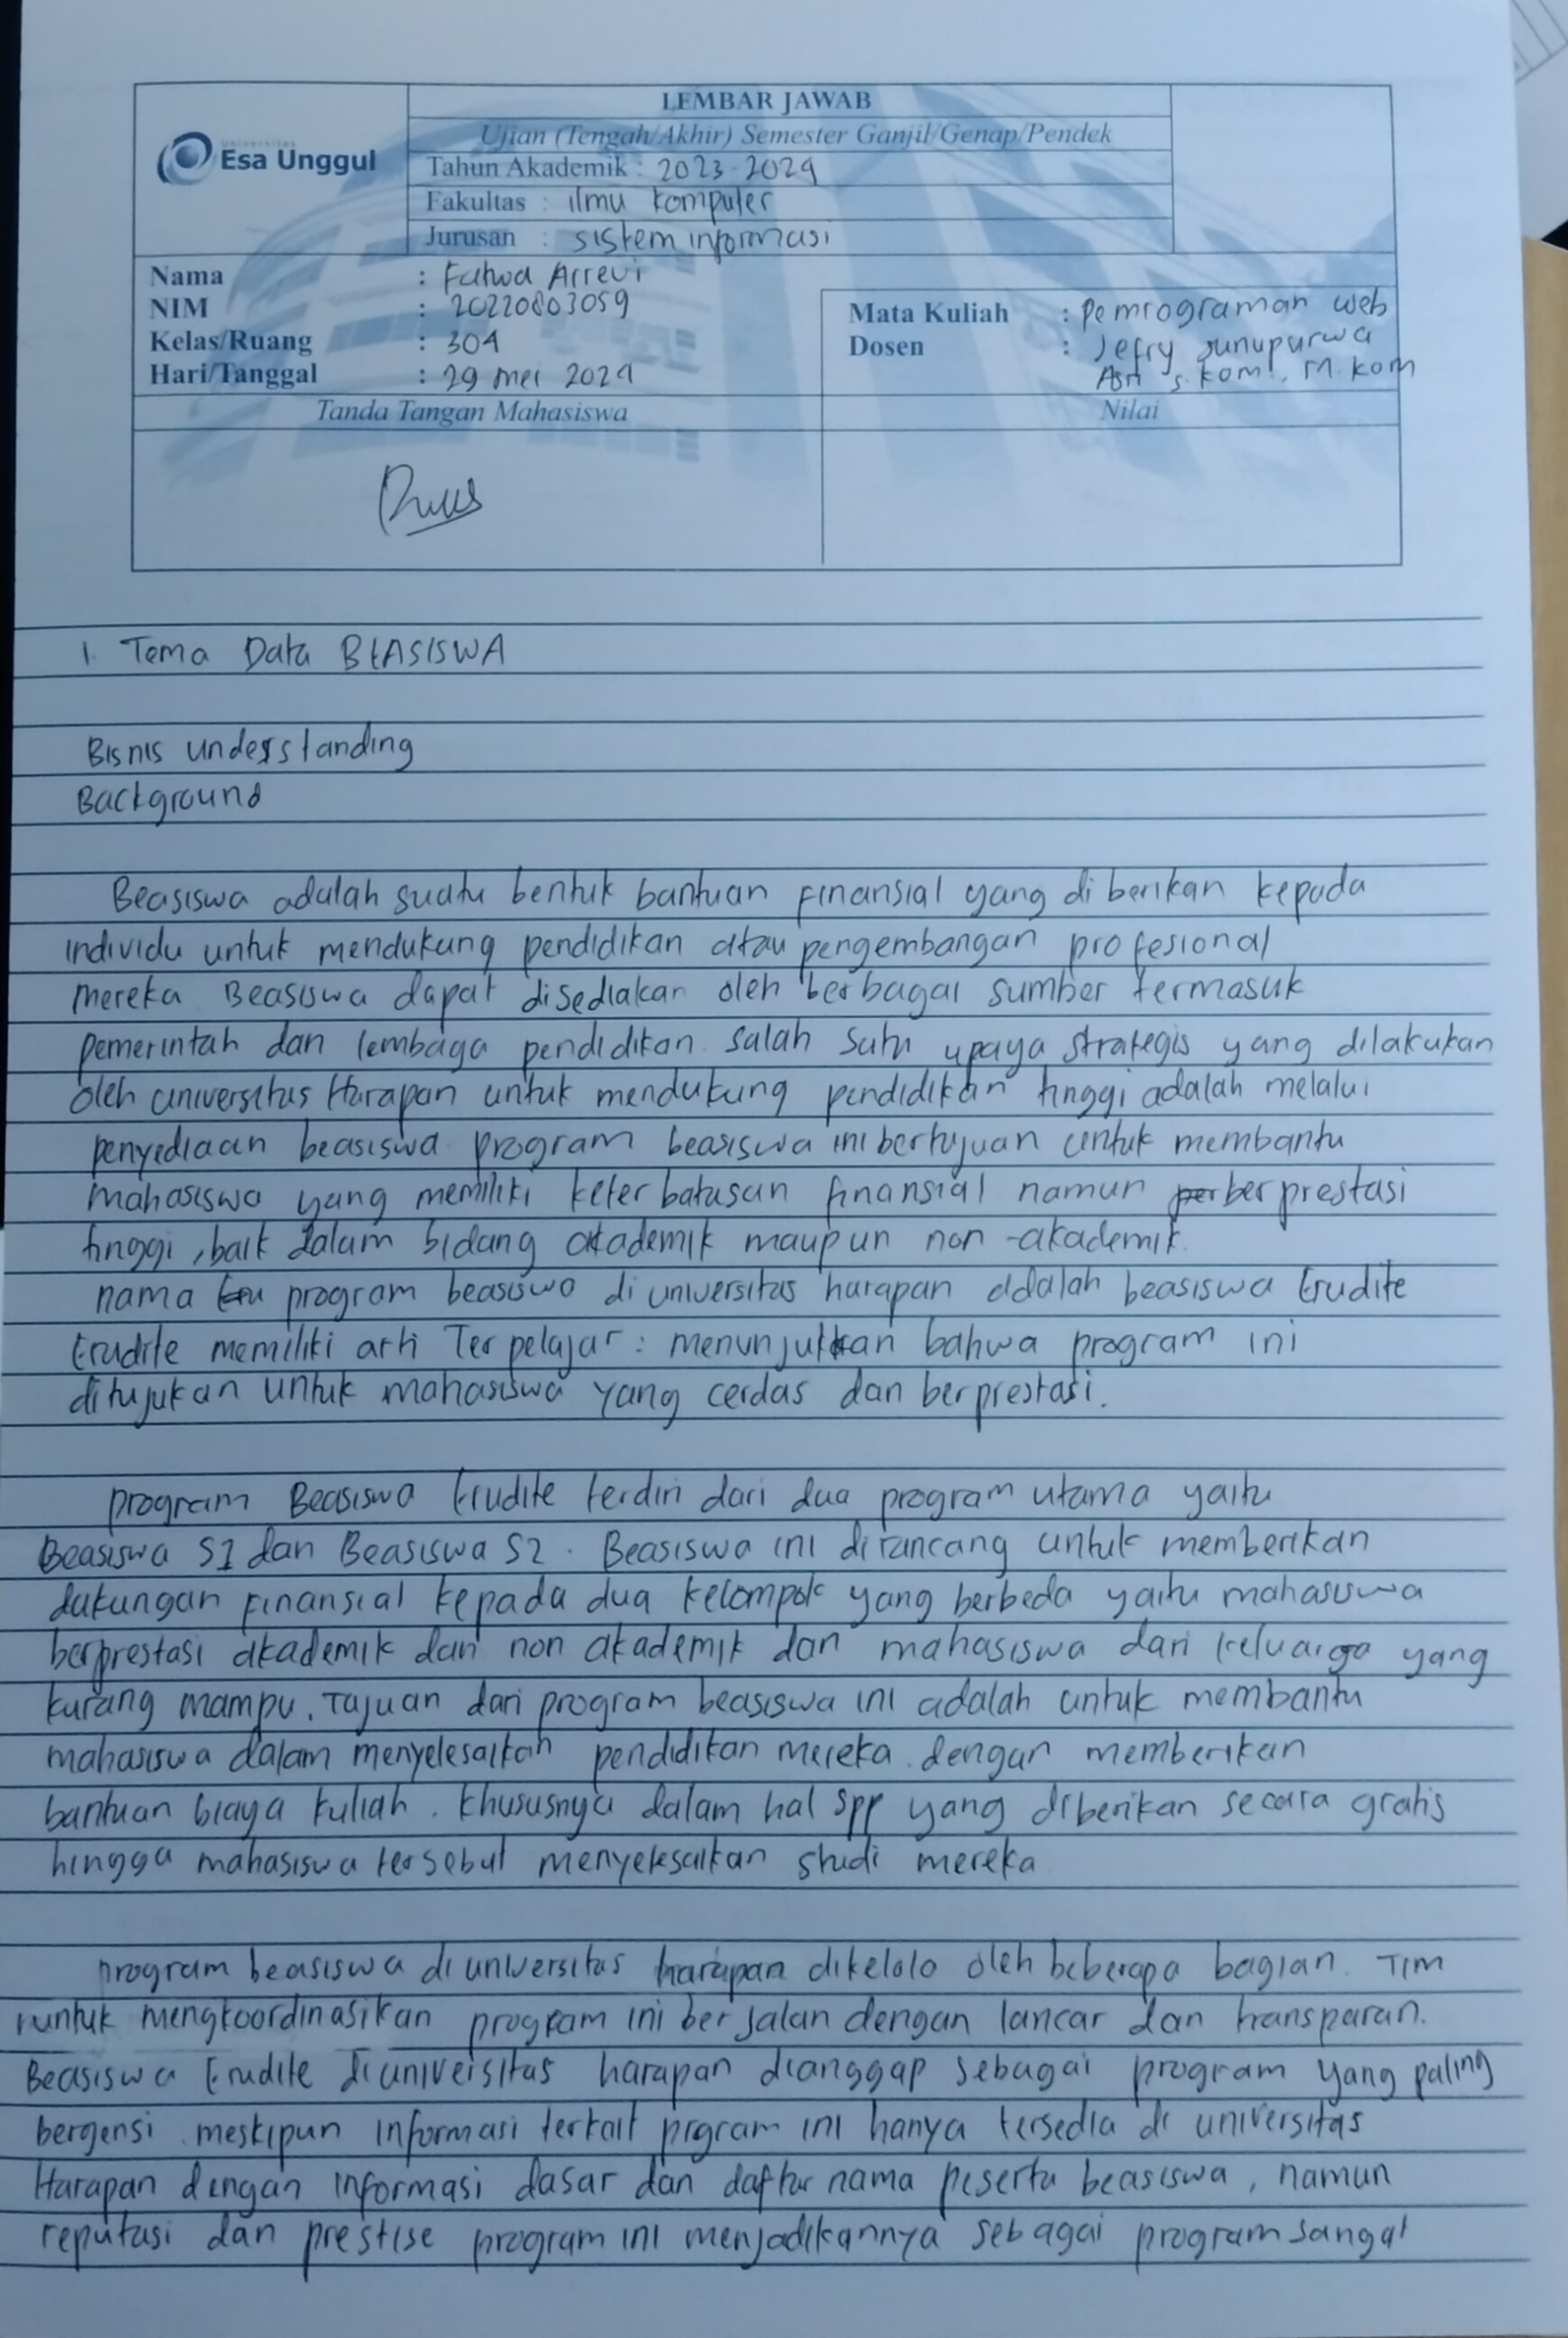 LEMBAR JAWAB
Ujian (Tengah/Akhir) Semester Ganjil/Genap/Pendek
Esa Unggul
Tahun Akademik : 2023-2024
Fakultas : ilmu komputer
Jurusan : sistem informasi
Nama : Fatwa Arrevi
NIM : 20220803059
Kelas/Ruang : 304
Hari/Tanggal : 29 mei 2024
Mata Kuliah : pemrograman web
Dosen : Jefry sunupurwa
Asri s.kom!, M.kom
Tanda Tangan Mahasiswa
Nilai
1. Tema Data BEASISWA
Bisnis understanding
Background
Beasiswa adalah suatu bentuk bantuan finansial yang di berikan kepada
individu untuk mendukung pendidikan atau pengembangan profesional
mereka. Beasiswa dapat disediakan oleh berbagai sumber termasuk
pemerintah dan lembaga pendidikan. salah satu upaya strategis yang dilakukan
oleh universitas Harapan untuk mendukung pendidikan tinggi adalah melalui
penyediaan beasiswa program beasiswa ini bertujuan untuk membantu
mahasiswa yang memiliki keterbatasan finansial namun berprestasi
tinggi, baik dalam bidang akademik maupun non-akademik.
nama program beasiswa di universitas harapan adalah beasiswa Erudite
Erudite memiliki arti Terpelajar: menunjukkan bahwa program ini
ditujukan untuk mahasiswa yang cerdas dan berprestasi.
program Beasiswa Erudite terdiri dari dua program utama yaitu
Beasiswa S1 dan Beasiswa S2. Beasiswa ini dirancang untuk memberikan
dukungan finansial kepada dua kelompok yang berbeda yaitu mahasiswa
berprestasi akademik dan non akademik dan mahasiswa dari keluarga yang
kurang mampu. Tujuan dari program beasiswa ini adalah untuk membantu
mahasiswa dalam menyelesaikan pendidikan mereka. dengan memberikan
bantuan biaya kuliah. khususnya dalam hal spp yang diberikan secara gratis
hingga mahasiswa tersebut menyelesaikan studi mereka
program beasiswa di universitas harapan dikelola oleh beberapa bagian. Tim
untuk mengkoordinasikan program ini berjalan dengan lancar dan transparan.
Beasiswa Erudite di universitas harapan dianggap sebagai program yang paling
bergensi. meskipun informasi terkait prgram ini hanya tersedia di universitas
Harapan dengan informasi dasar dan daftar nama peserta beasiswa, namun
reputasi dan prestise program ini menjadikannya sebagai program sangat